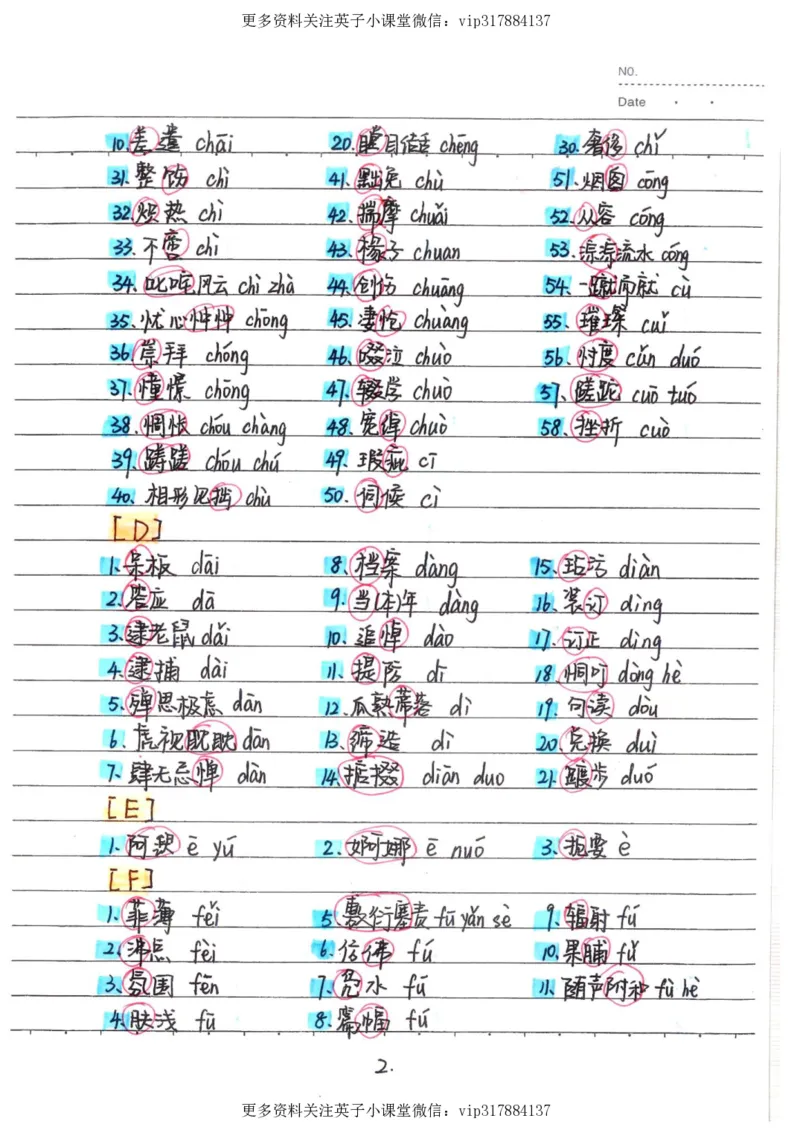 更多资料关注英子小课堂微信：vip317884137
NO.
Date
10.差遣 chāi 20.瞠目结舌 chēng 30.奢侈 chǐ
31.整饬 chì 41.黜免 chù 51.烟囱 cōng
32.炽热 chì 42.揣摩 chuǎi 52.从容 cóng
33.不啻 chì 43.椽子 chuan 53.淙淙流水 cóng
34.叱咤风云 chì zhà 44.创伤 chuāng 54.一蹴而就 cù
35.忧心忡忡 chōng 45.凄怆 chuàng 55.璀璨 cuǐ
36.崇拜 chóng 46.啜泣 chuò 56.忖度 cǔn duó
37.憧憬 chōng 47.辍学 chuò 57.蹉跎 cuō tuó
38.惆怅 chóu chàng 48.宽绰 chuò 58.挫折 cuò
39.踌躇 chóu chú 49.瑕疵 cī
40.相形见绌 chù 50.伺候 cì
[D]
1.呆板 dāi 8.档案 dàng 15.玷污 diàn
2.答应 dā 9.当(本)年 dàng 16.装订 dìng
3.逮老鼠 dǎi 10.追悼 dào 17.订正 dìng
4.逮捕 dài 11.提防 dī 18.恫吓 dòng hè
5.殚思极虑 dān 12.瓜熟蒂落 dì 19.句读 dòu
6.虎视眈眈 dān 13.缔造 dì 20.兑换 duì
7.肆无忌惮 dàn 14.掂掇 diān duo 21.踱步 duó
[E]
1.阿谀 ē yú 2.婀娜 ē nuó 3.扼要 è
[F]
1.菲薄 fěi 5.敷衍塞责 fū yǎn sè 9.辐射 fú
2.沸点 fèi 6.仿佛 fú 10.果脯 fǔ
3.氛围 fēn 7.凫水 fú 11.随声附和 fù hè
4.肤浅 fū 8.篇幅 fú
2.
更多资料关注英子小课堂微信：vip317884137